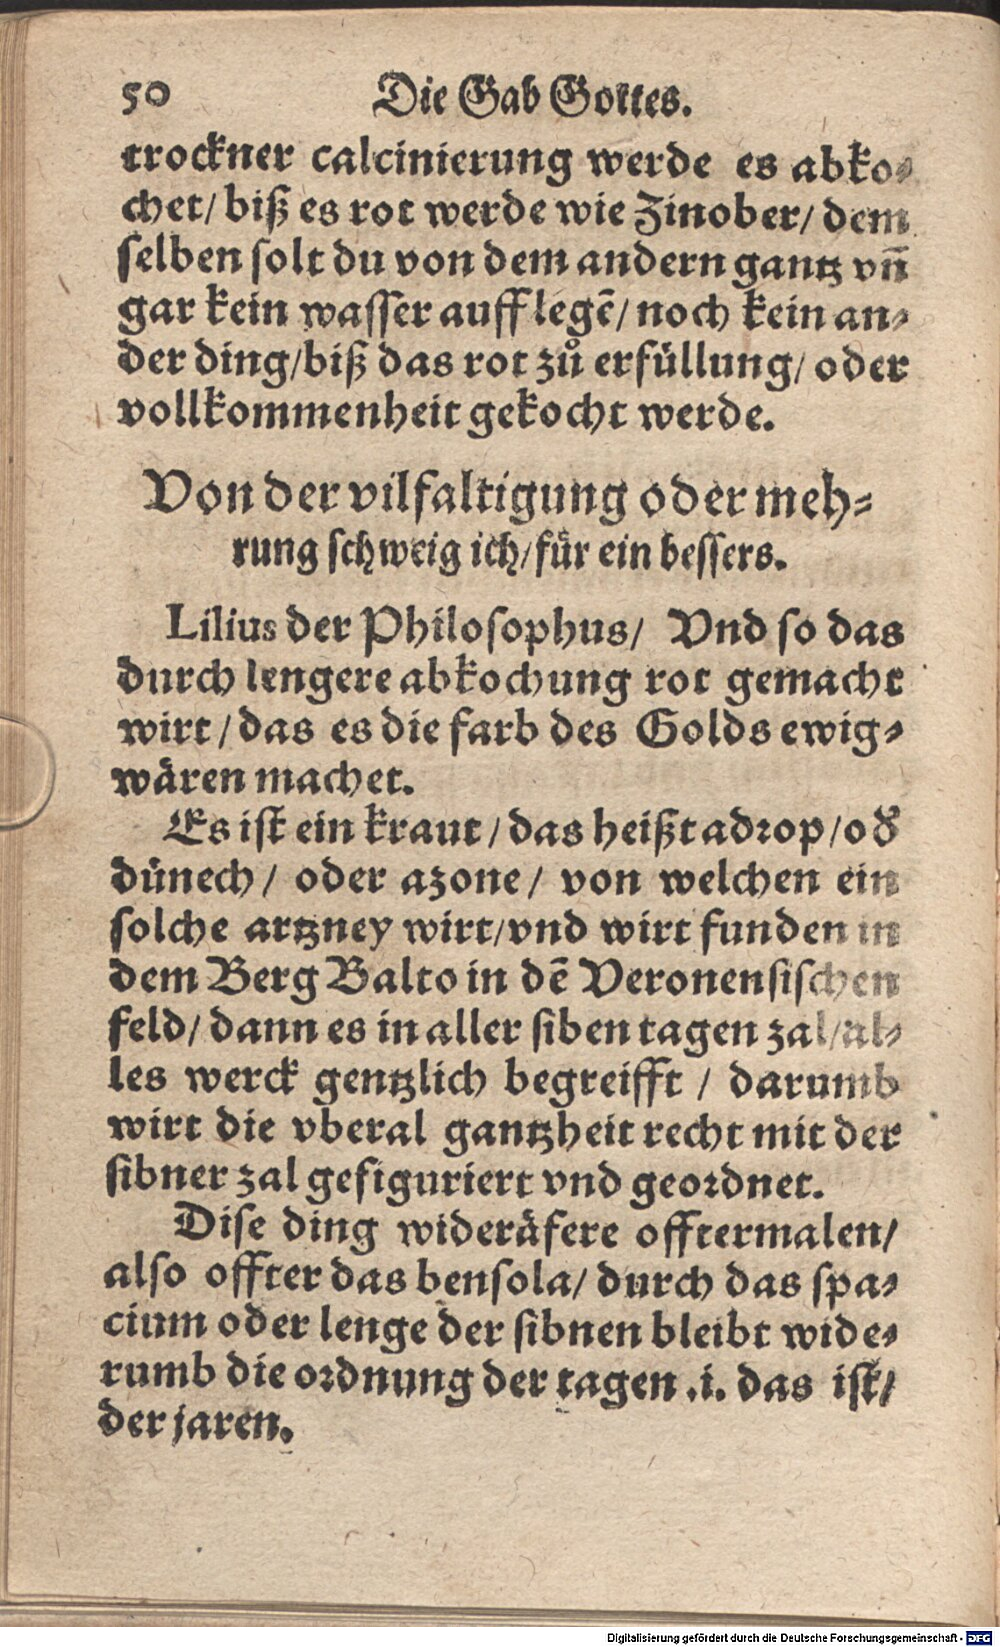 50 Die Gab Gottes.
trockner calcinierung werde es abko⸗
chet/ biß es rot werde wie Zinober/ dem
selben solt du von dem andern gantz vn̄
gar kein wasser auff legē/ noch kein an⸗
der ding/ biß das rot zů erfüllung/ oder
vollkommenheit gekocht werde.
Von der vilfaltigung oder meh⸗
rung schweig ich/ für ein bessers.
Lilius der Philosophus/ Vnd so das
durch lengere abkochung rot gemacht
wirt/ das es die farb des Golds ewig⸗
wären machet.
Es ist ein kraut/ das heißt adrop/ od
dünech/ oder azone/ von welchen ein
solche artzney wirt/ vnd wirt funden in
dem Berg Balto in dē Veronensischen
feld/ dann es in aller siben tagen zal/ al⸗
les werck gentzlich begreifft/ darumb
wirt die vberal gantzheit recht mit der
sibner zal gefiguriert vnd geordnet.
Dise ding wideräfere offtermalen/
also offter das bensola/ durch das spa⸗
cium oder lenge der sibnen bleibt wide⸗
rumb die ordnung der tagen .i. das ist/
der jaren.
Digitalisierung gefördert durch die Deutsche Forschungsgemeinschaft - DFG